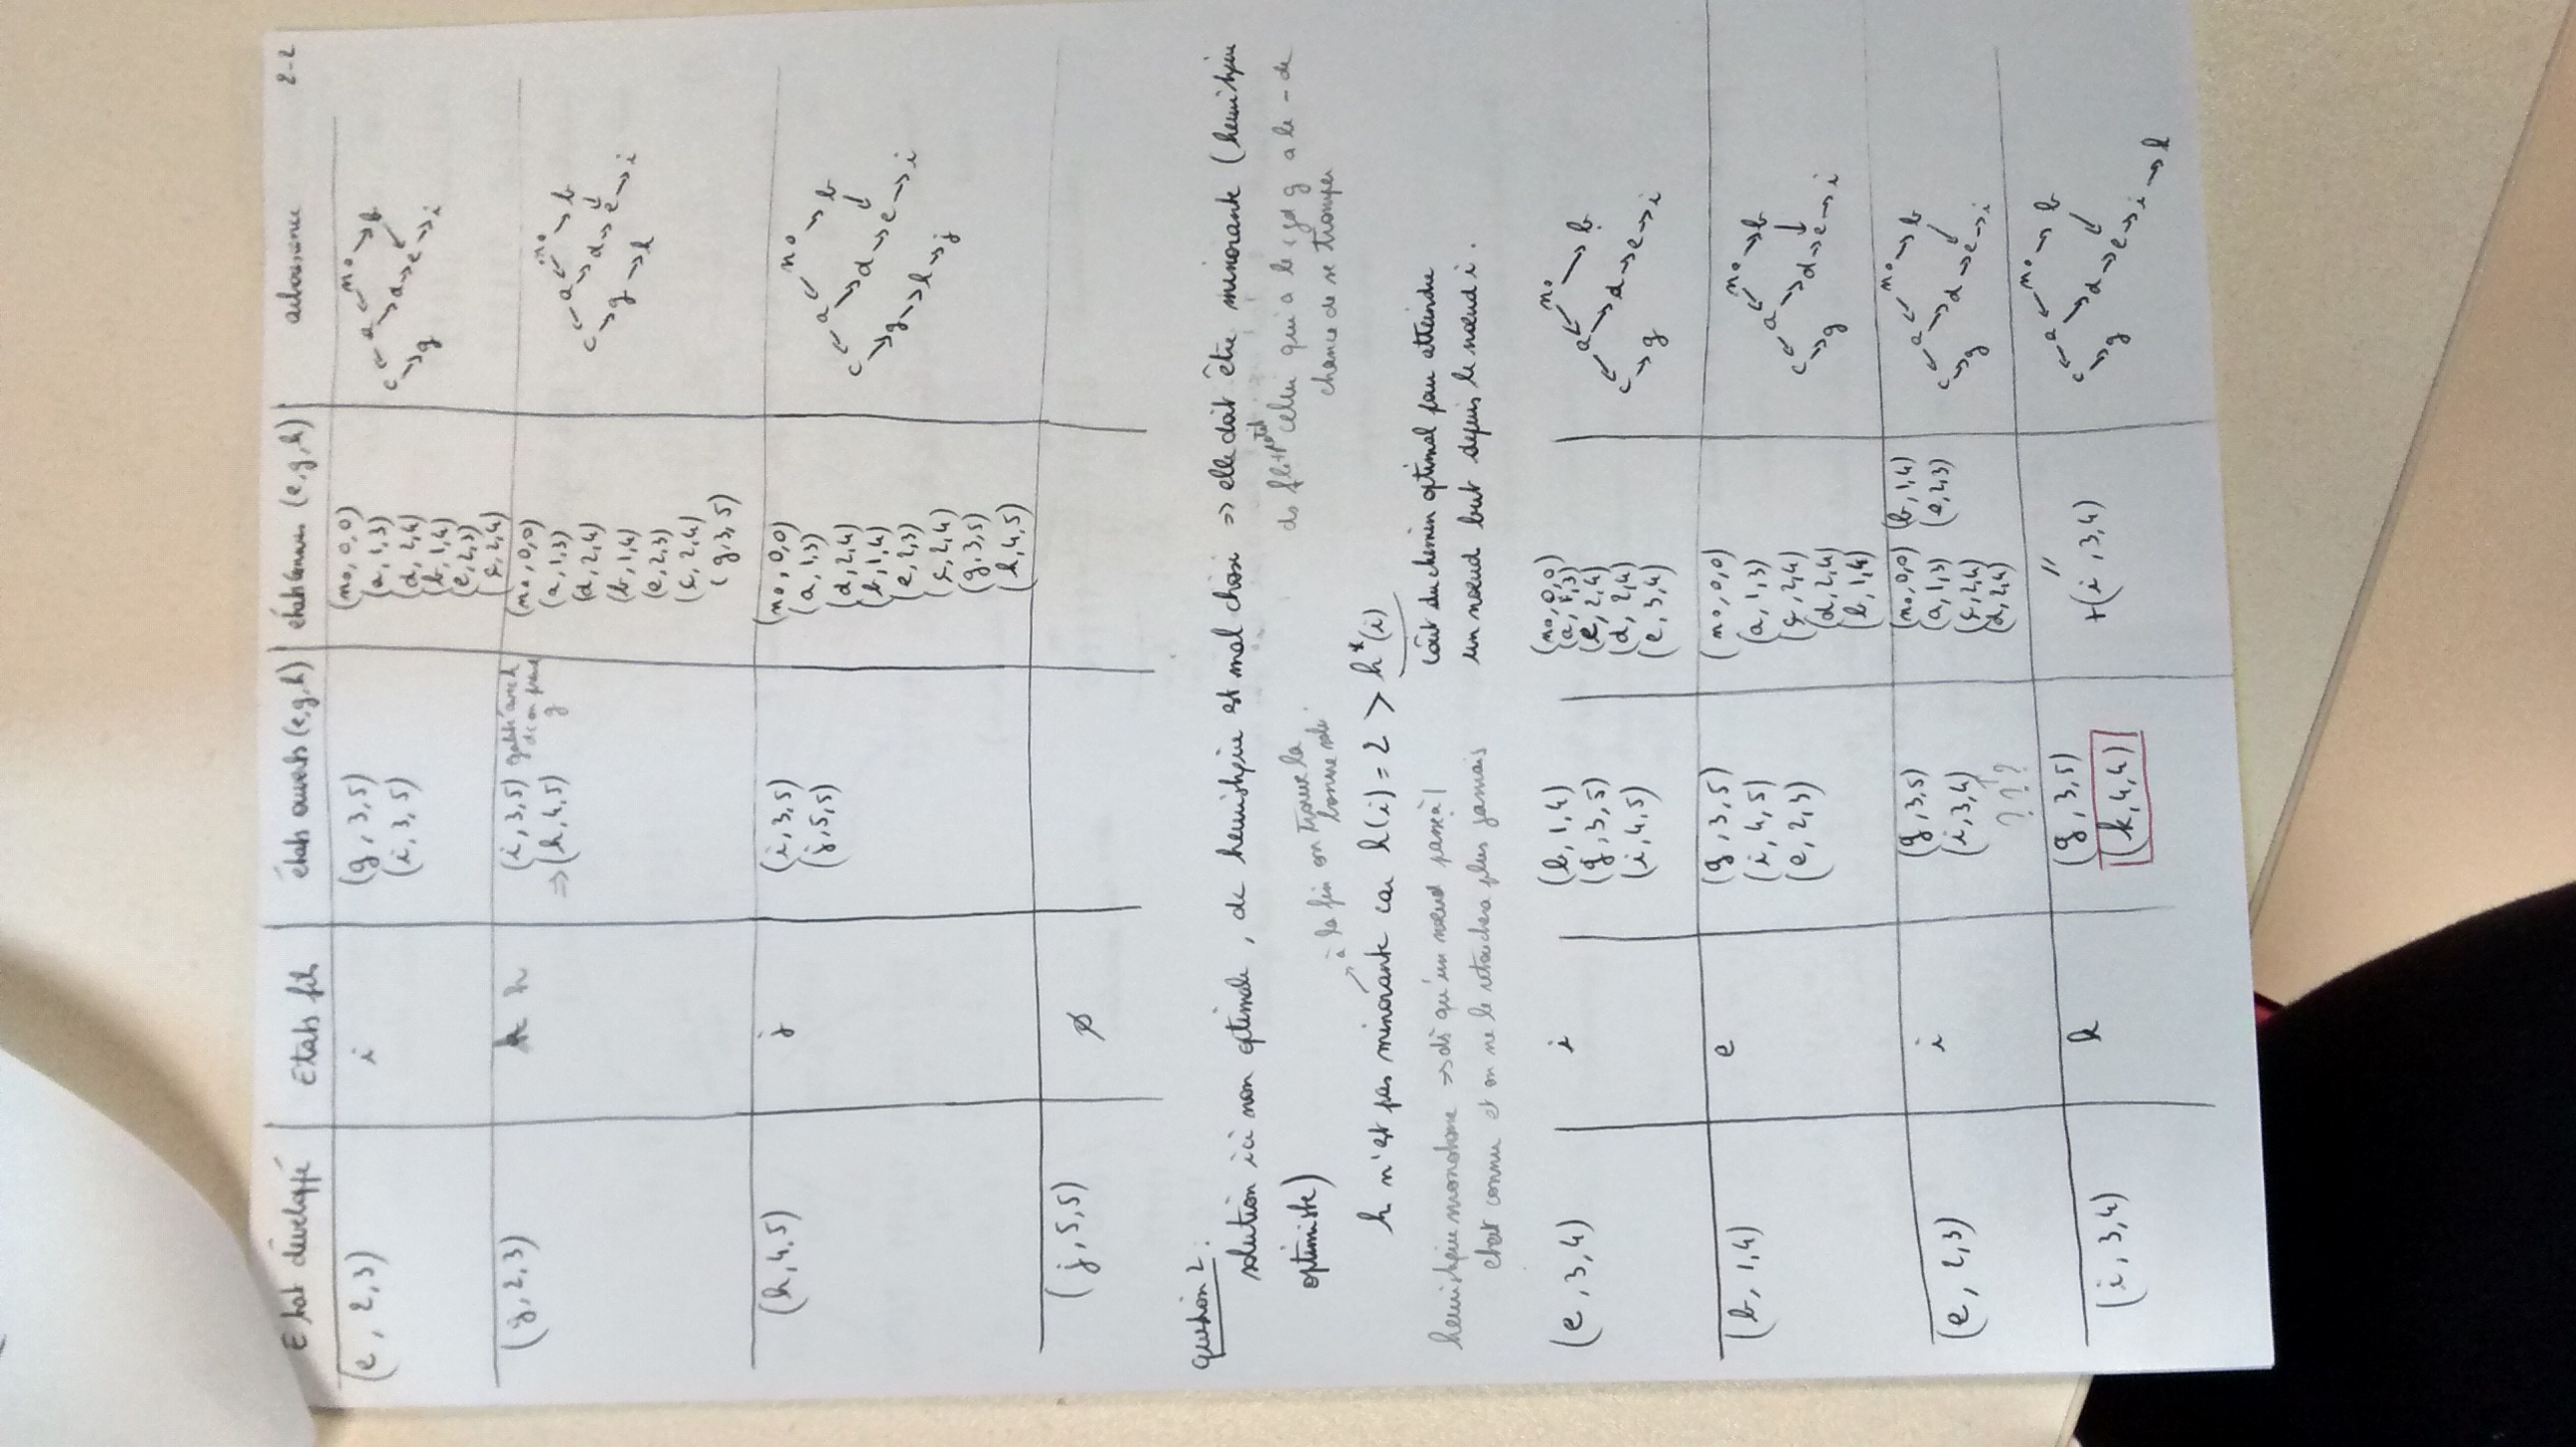 2-2
Etat développé | Etats fils | états ouverts (e,g,h) | états connus (e,g,h) | arborescence
(e, 2, 3) | i | (g, 3, 5) (i, 3, 5) | (n0, 0, 0) (a, 1, 3) (d, 2, 4) (b, 1, 4) (e, 2, 3) (c, 2, 4) | n0 a b c d e g i
(g, 2, 3) | h | (i, 3, 5) => (h, 4, 5) | (n0, 0, 0) (a, 1, 3) (d, 2, 4) (b, 1, 4) (e, 2, 3) (c, 2, 4) (g, 3, 5) | n0 a b c d e g h i
(h, 4, 5) | j | (i, 3, 5) (j, 5, 5) | (n0, 0, 0) (a, 1, 3) (d, 2, 4) (b, 1, 4) (e, 2, 3) (c, 2, 4) (g, 3, 5) (h, 4, 5) | n0 a b c d e g h i j
(j, 5, 5) | ∅
question 2 :
solution ici non optimale, dc heuristique est mal choisi => elle doit être minorante (heuristique
optimiste)
celui qui a le + gd g a le - de
chance de se tromper
à la fin on trouve la
bonne sol°
h n'est pas minorante car h(i) = 2 > h*(i)
coût du chemin optimal pour atteindre
un noeud but depuis le noeud i.
heuristique monotone => dès qu'un noeud passe à l'
état connu et on ne le retouchera plus jamais
(e, 3, 4) | i | (b, 1, 4) (g, 3, 5) (i, 4, 5) | (n0, 0, 0) (a, 1, 3) (c, 2, 4) (d, 2, 4) (e, 3, 4) | n0 a b c d e g i
(b, 1, 4) | e | (g, 3, 5) (i, 4, 5) (e, 2, 3) | (n0, 0, 0) (a, 1, 3) (c, 2, 4) (d, 2, 4) (b, 1, 4) | n0 a b c d e g i
(e, 2, 3) | i | (g, 3, 5) (i, 3, 4) ??? | (n0, 0, 0) (a, 1, 3) (c, 2, 4) (d, 2, 4) (b, 1, 4) (e, 2, 3) | n0 a b c d e g i
(i, 3, 4) | k | (g, 3, 5) (k, 4, 4) | " +(i, 3, 4) | n0 a b c d e g i k